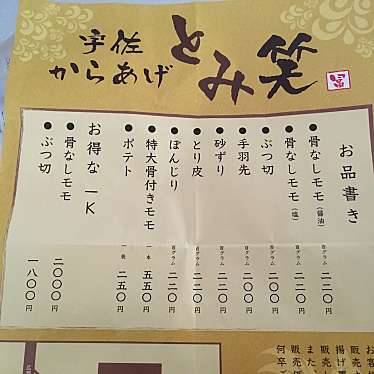 宇佐
からあげ
とみ笑
お品書き
●骨なしモモ（醤油） 百グラム 二二〇円
●骨なしモモ（塩） 百グラム 二二〇円
●ぶつ切 百グラム 二二〇円
●手羽先 百グラム 二二〇円
●砂ずり 百グラム 二二〇円
●とり皮 百グラム 二二〇円
●ぼんじり 百グラム 二二〇円
●特大骨付きモモ 一本 五五〇円
●ポテト 一袋 二五〇円
お得な一K
●骨なしモモ 二〇〇〇円
●ぶつ切 一八〇〇円
お客
販売
揚げ
販売し
また、
販売価
何卒ご